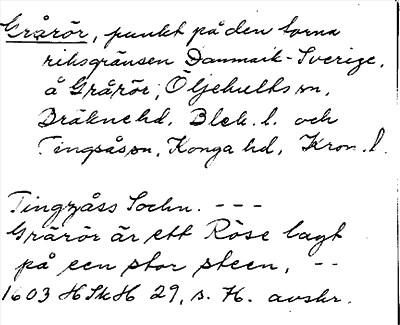 Grårör, punkt på den forna
riksgränsen Danmark-Sverige,
å Gråröz, Öljehults sn,
Bräkne hd, Blek. l. och
Tingsås sn, Konga hd, Kron. l.
Tingzåss Sochn. ---
Grårör är ett Röse lagt
på een stor steen, --
1603 HSkH 29, s. 74. avskr.